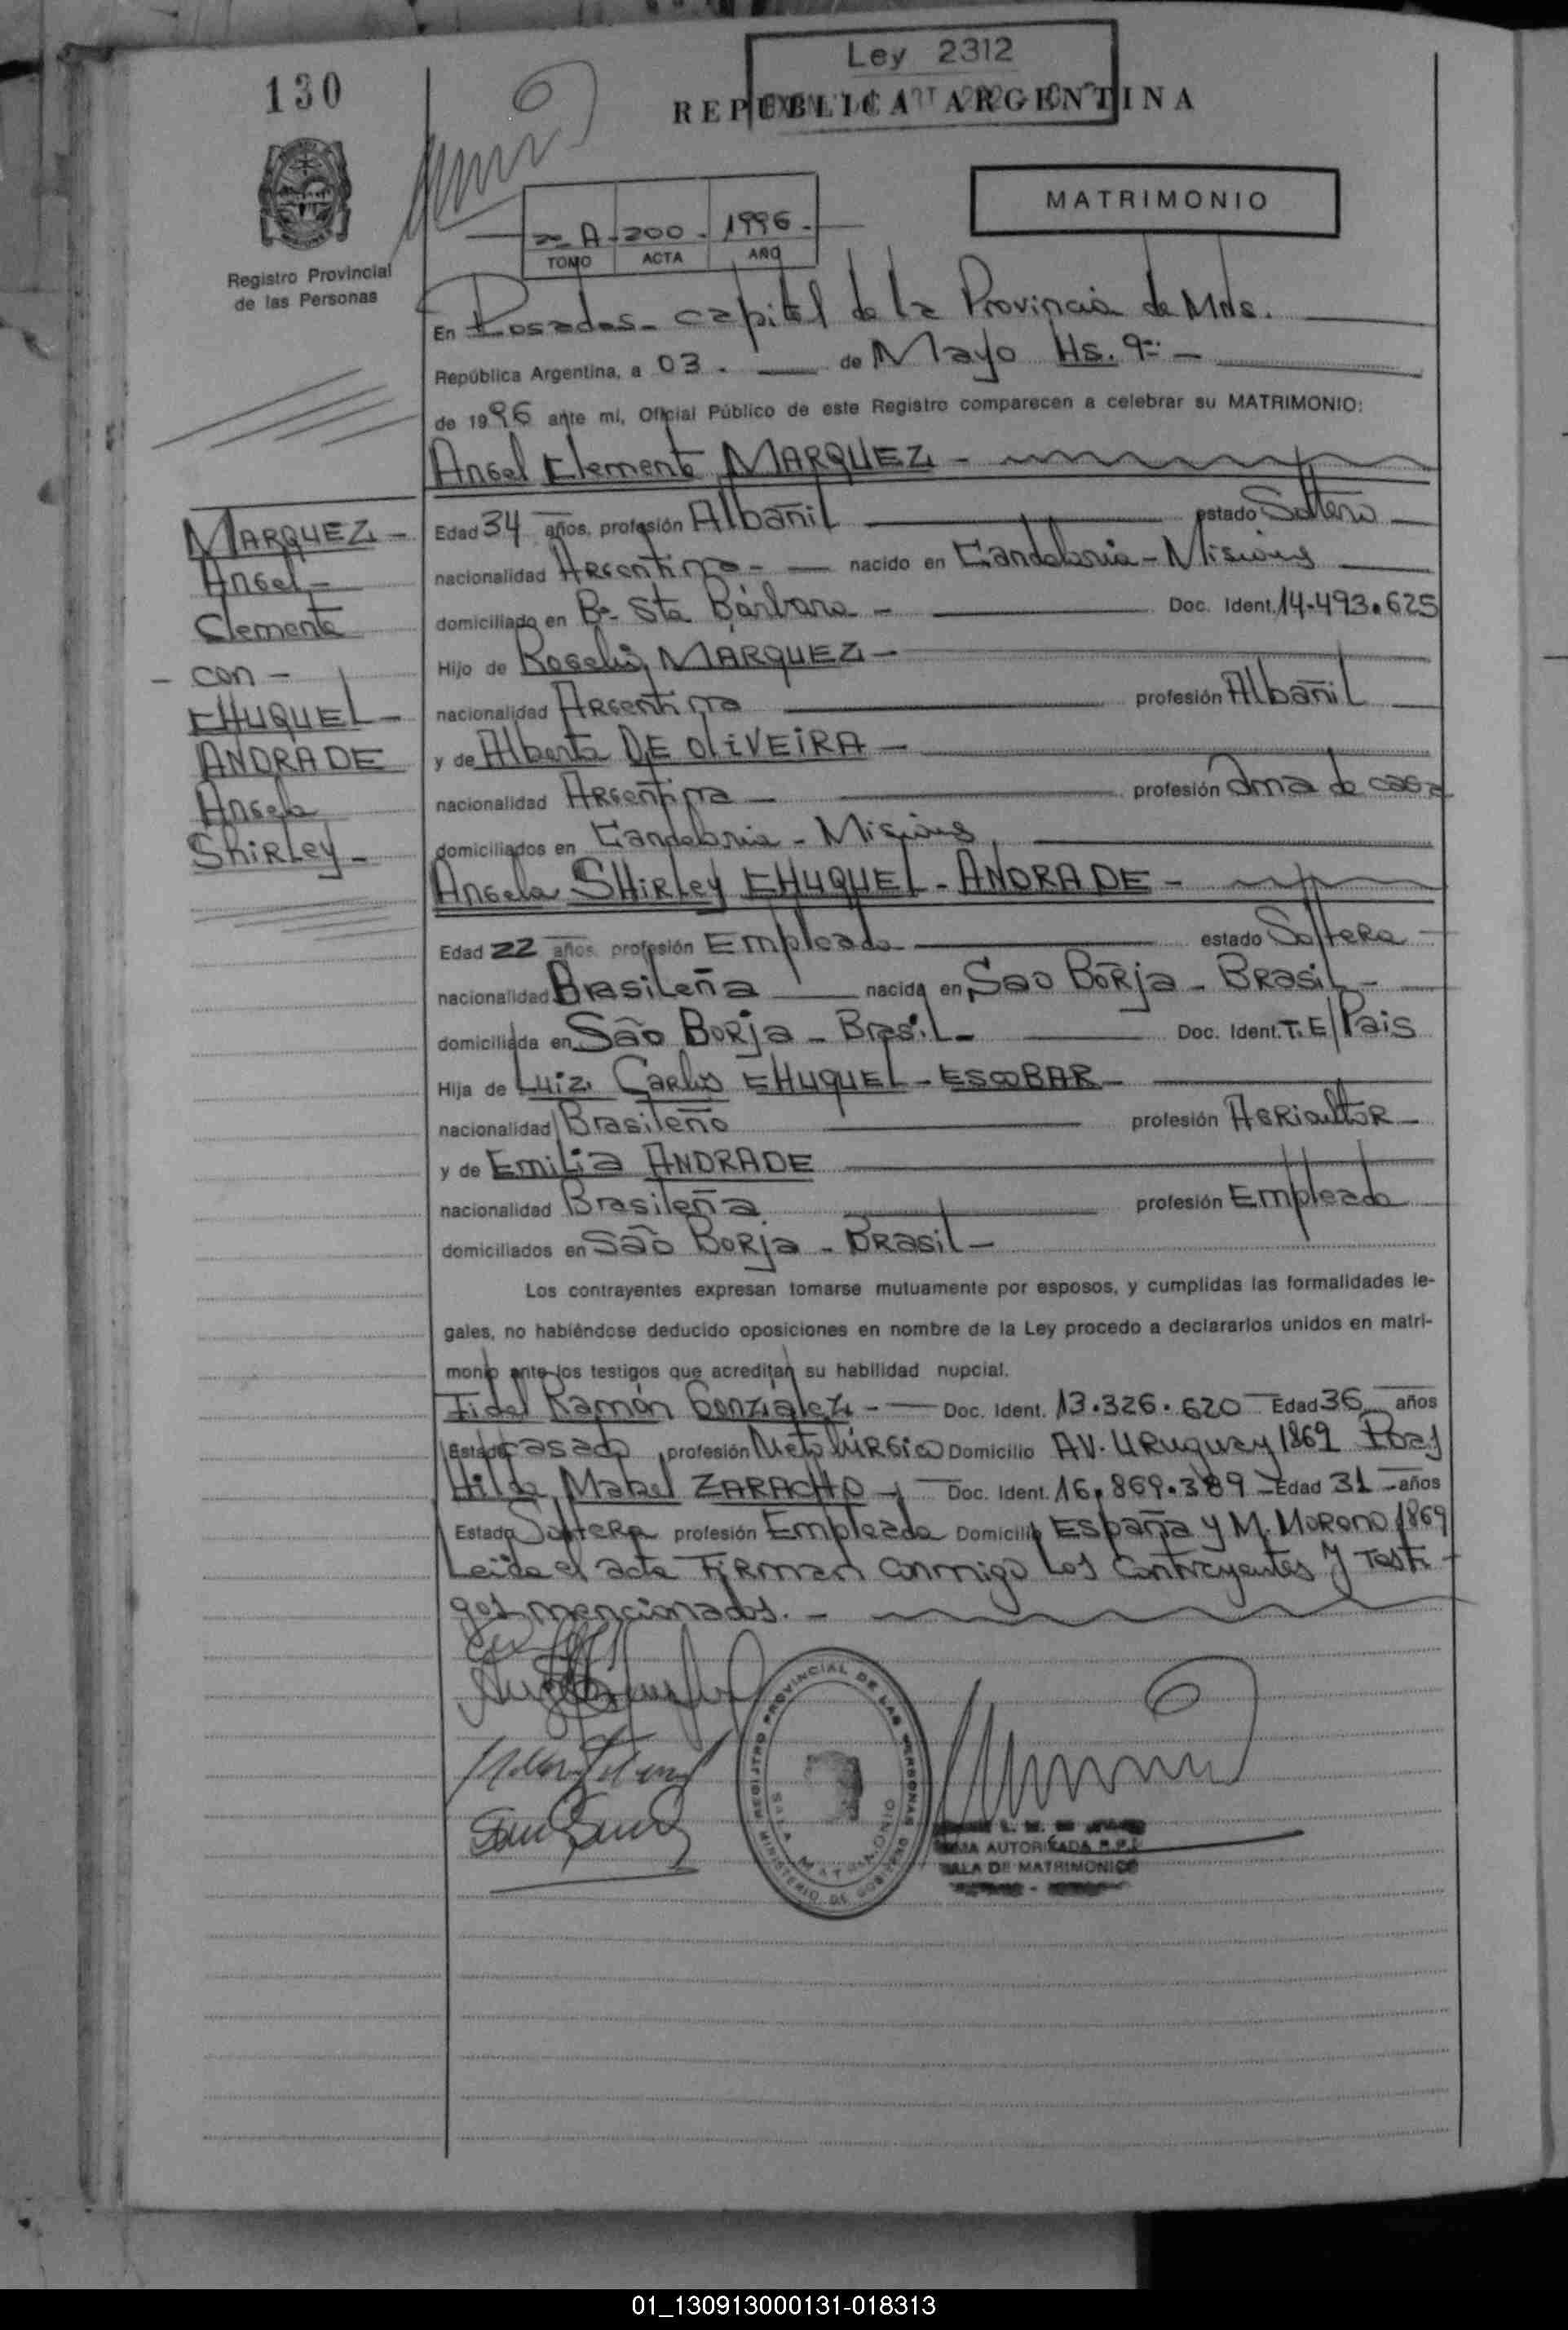 130
Ley 2312
REPUBLICA ARGENTINA
MATRIMONIO
Registro Provincial
de las Personas
2-A-200-1996-
TOMO ACTA AÑO
En Posadas- capital de la Provincia de Mns.
República Argentina, a 03. de Mayo Hs. 9
de 1996 ante mí, Oficial Público de este Registro comparecen a celebrar su MATRIMONIO:
Angel Clemente MARQUEZ -
MARQUEZ -
Angel -
Clemente
- con -
CHUQUEL -
ANDRADE
Angela
Shirley -
Edad 34 años, profesión Albañil estado Soltero
nacionalidad Argentina - nacido en Candelaria - Misiones
domiciliado en Bº Sta Bárbara - Doc. Ident. 14.493.625
Hijo de Rogelio MARQUEZ -
nacionalidad Argentina profesión Albañil
y de Alberta DE OLIVEIRA -
nacionalidad Argentina - profesión Ama de casa
domiciliados en Candelaria - Misiones
Angela SHIRLEY CHUQUEL - ANDRADE -
Edad 22 años profesión Empleada estado Soltera
nacionalidad Brasileña nacida en Sao Borja - Brasil -
domiciliada en São Borja - Brasil - Doc. Ident. T.E/Pais
Hija de Luiz Carlos CHUQUEL - ESCOBAR -
nacionalidad Brasileño profesión Agricultor -
y de Emilia ANDRADE
nacionalidad Brasileña profesión Empleada
domiciliados en São Borja - Brasil -
Los contrayentes expresan tomarse mutuamente por esposos, y cumplidas las formalidades le-
gales, no habiéndose deducido oposiciones en nombre de la Ley procedo a declararlos unidos en matri-
monio ante los testigos que acreditan su habilidad nupcial.
Fidel Ramón González - Doc. Ident. 13.326.620 Edad 36 años
Estado casado profesión Metalúrgico Domicilio AV. Uruguay 1869 Pdas
Hilda Mabel ZARACHO - Doc. Ident. 16.869.389 - Edad 31 - años
Estado Soltera profesión Empleada Domicilio España y M. Moreno 1869
Leída el acta Firman conmigo los contrayentes y testi-
gos mencionados. -
REGISTRO PROVINCIAL DE LAS PERSONAS
SALA MATRIMONIO
MINISTERIO DE GOBIERNO
FIRMA AUTORIZADA R.P.P.
SALA DE MATRIMONIOS
01_130913000131-018313